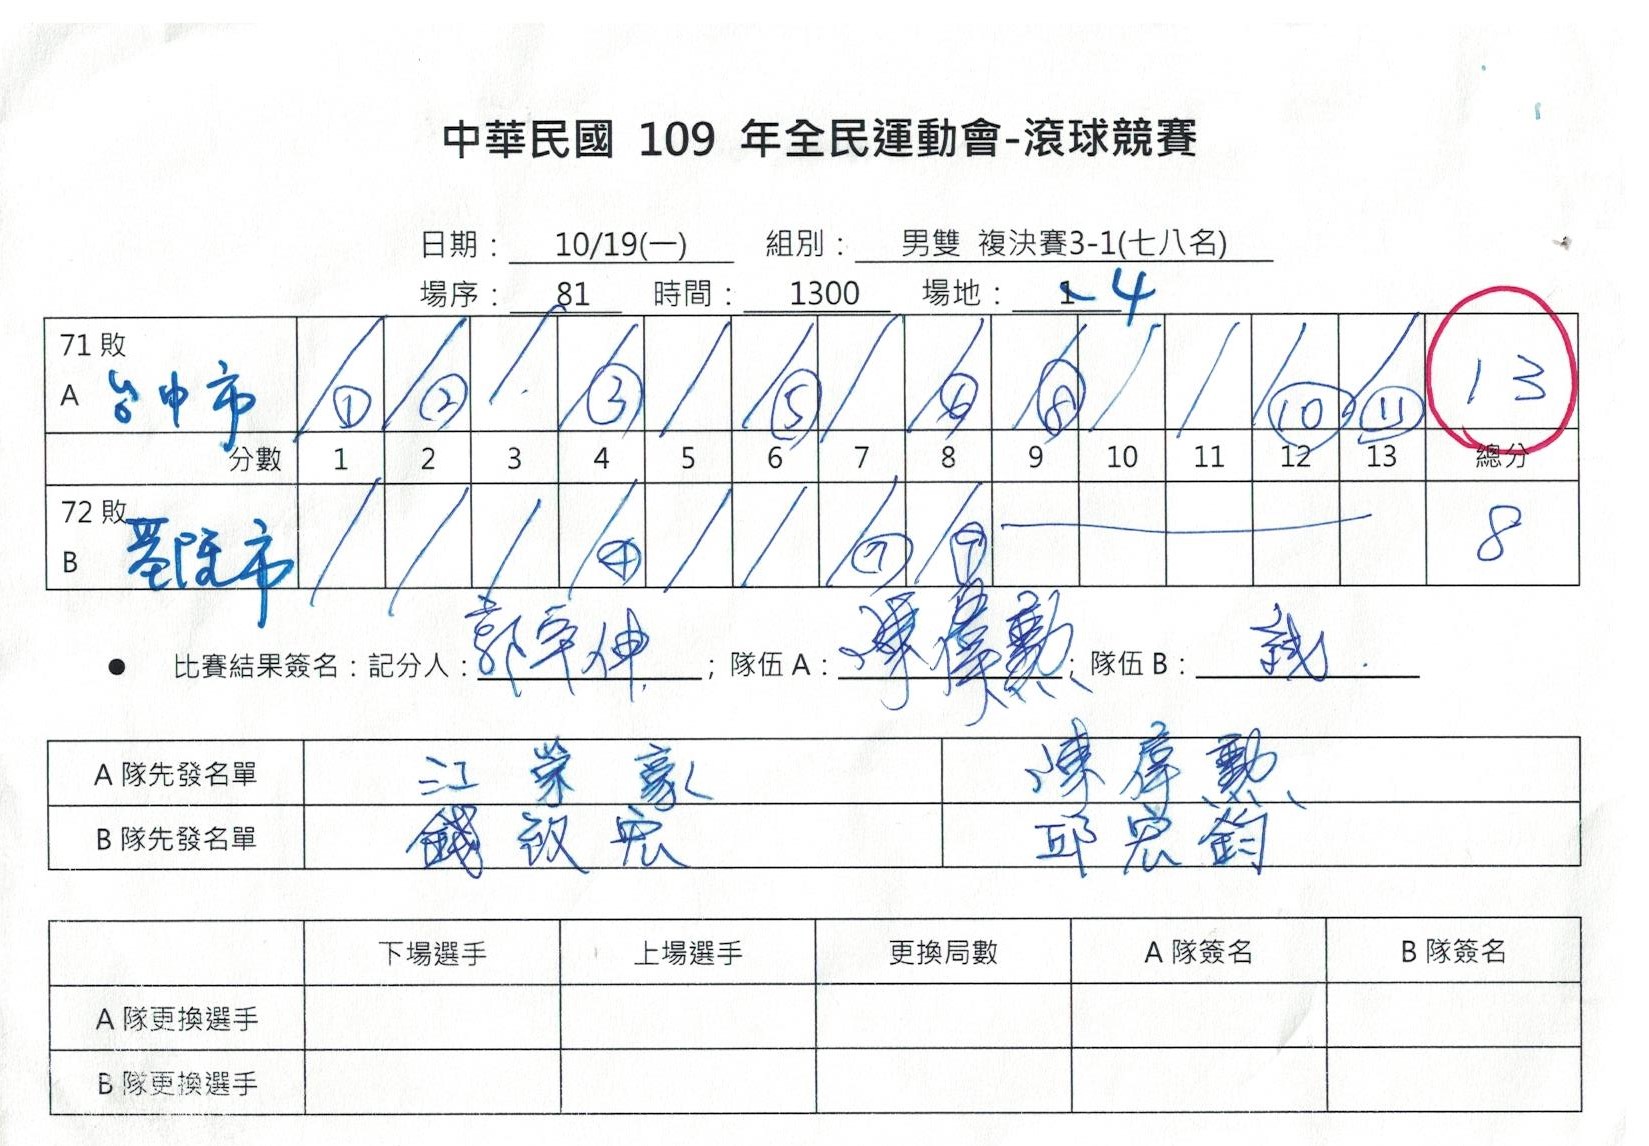 中華民國 109 年全民運動會-滾球競賽
日期： 10/19(一) 組別： 男雙 複決賽3-1(七八名)
場序： 81 時間： 1300 場地： 1 4
71 敗
A 台中市 ① ② ③ ⑤ ⑥ ⑧ ⑩ ⑪ 13
分數 1 2 3 4 5 6 7 8 9 10 11 12 13 總分
72 敗
B 基隆市 ④ ⑦ 8
● 比賽結果簽名：記分人： ；隊伍 A： 陳偉勳 ；隊伍 B：
A 隊先發名單 江榮豪 陳偉勳
B 隊先發名單 邱宏鈞
下場選手 上場選手 更換局數 A 隊簽名 B 隊簽名
A 隊更換選手
B 隊更換選手